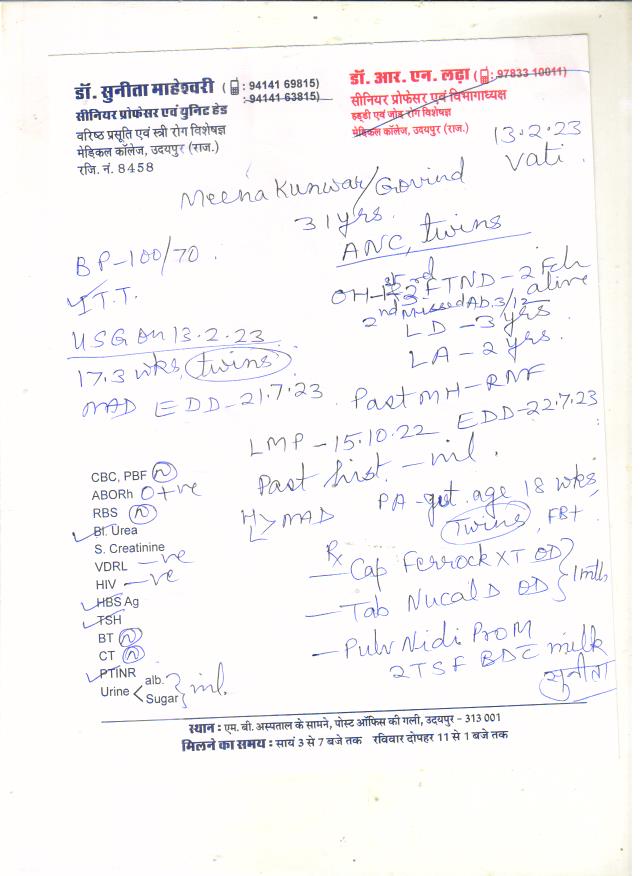 डॉ. सुनीता माहेश्वरी ( : 94141 69815)
: 94141 63815)
सीनियर प्रोफेसर एवं यूनिट हेड
वरिष्ठ प्रसूति एवं स्त्री रोग विशेषज्ञ
मेडिकल कॉलेज, उदयपुर (राज.)
रजि. नं. 8458
डॉ. आर. एन. लढ़ा ( : 97833 10011)
सीनियर प्रोफेसर एवं विभागाध्यक्ष
हड्डी एवं जोड़ रोग विशेषज्ञ
मेडिकल कॉलेज, उदयपुर (राज.)
13.2.23
Vati
Meena Kunwar/Govind
31 yrs.
ANC, twins
BP-100/70.
I T.T.
USG on 13.2.23
17.3 wks, twins
MAD EDD-21.7.23
OH-1st 3rd FTND-2 Fch
2nd Missed AD.3/12 alive
LD -3 yrs
LA-2 yrs.
Past MH-RNF
LMP-15.10.22 EDD-22.7.23
Past hist. - nil.
PA-gut. age 18 wks,
Twins, FB+
H/L> MAD
CBC, PBF N
ABORh O+ve
RBS N
Bl. Urea
S. Creatinine
VDRL -ve
HIV -ve
HBS Ag
TSH
BT N
CT N
PTINR
Urine < alb. Sugar } nil.
Rx
- Cap Ferrock XT OD
- Tab Nucal D OD } 1 mth
- Pulv Nidi Pro M
2 TSF BDC milk
सुनीता
स्थान : एम. बी. अस्पताल के सामने, पोस्ट ऑफिस की गली, उदयपुर - 313 001
मिलने का समय : सायं 3 से 7 बजे तक रविवार दोपहर 11 से 1 बजे तक